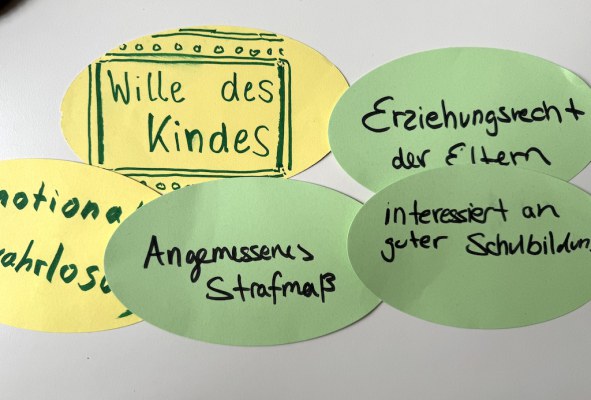 Wille des
Kindes
Erziehungsrecht
der Eltern
Angemessenes
Strafmaß
interessiert an
guter Schulbildung